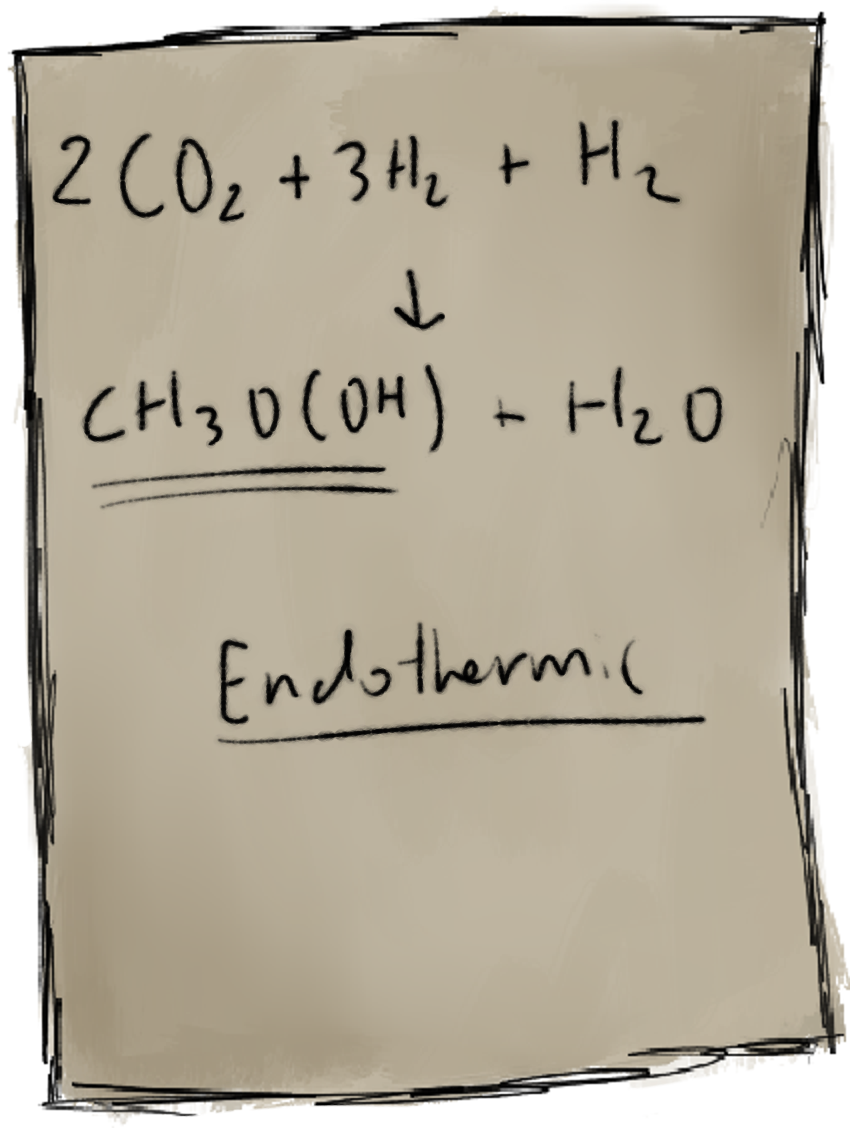 2 CO₂ + 3H₂ + H₂
↓
CH₃O(OH) + H₂O
Endothermic